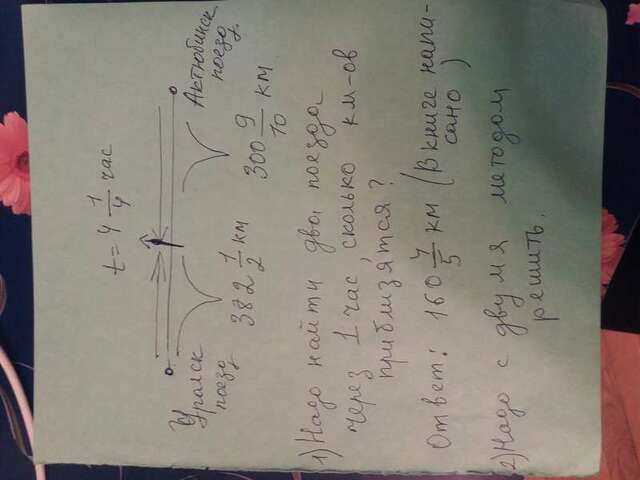 t = 4 1/4 час
Уралск
поезд
Актюбинск
поезд
382 1/2 км
300 9/10 км
1) Надо найти два поезда
через 1 час, сколько км-ов
приблизятся?
Ответ: 160 4/5 км (В книге напи-
сано)
2) Надо с двумя методом
решить.